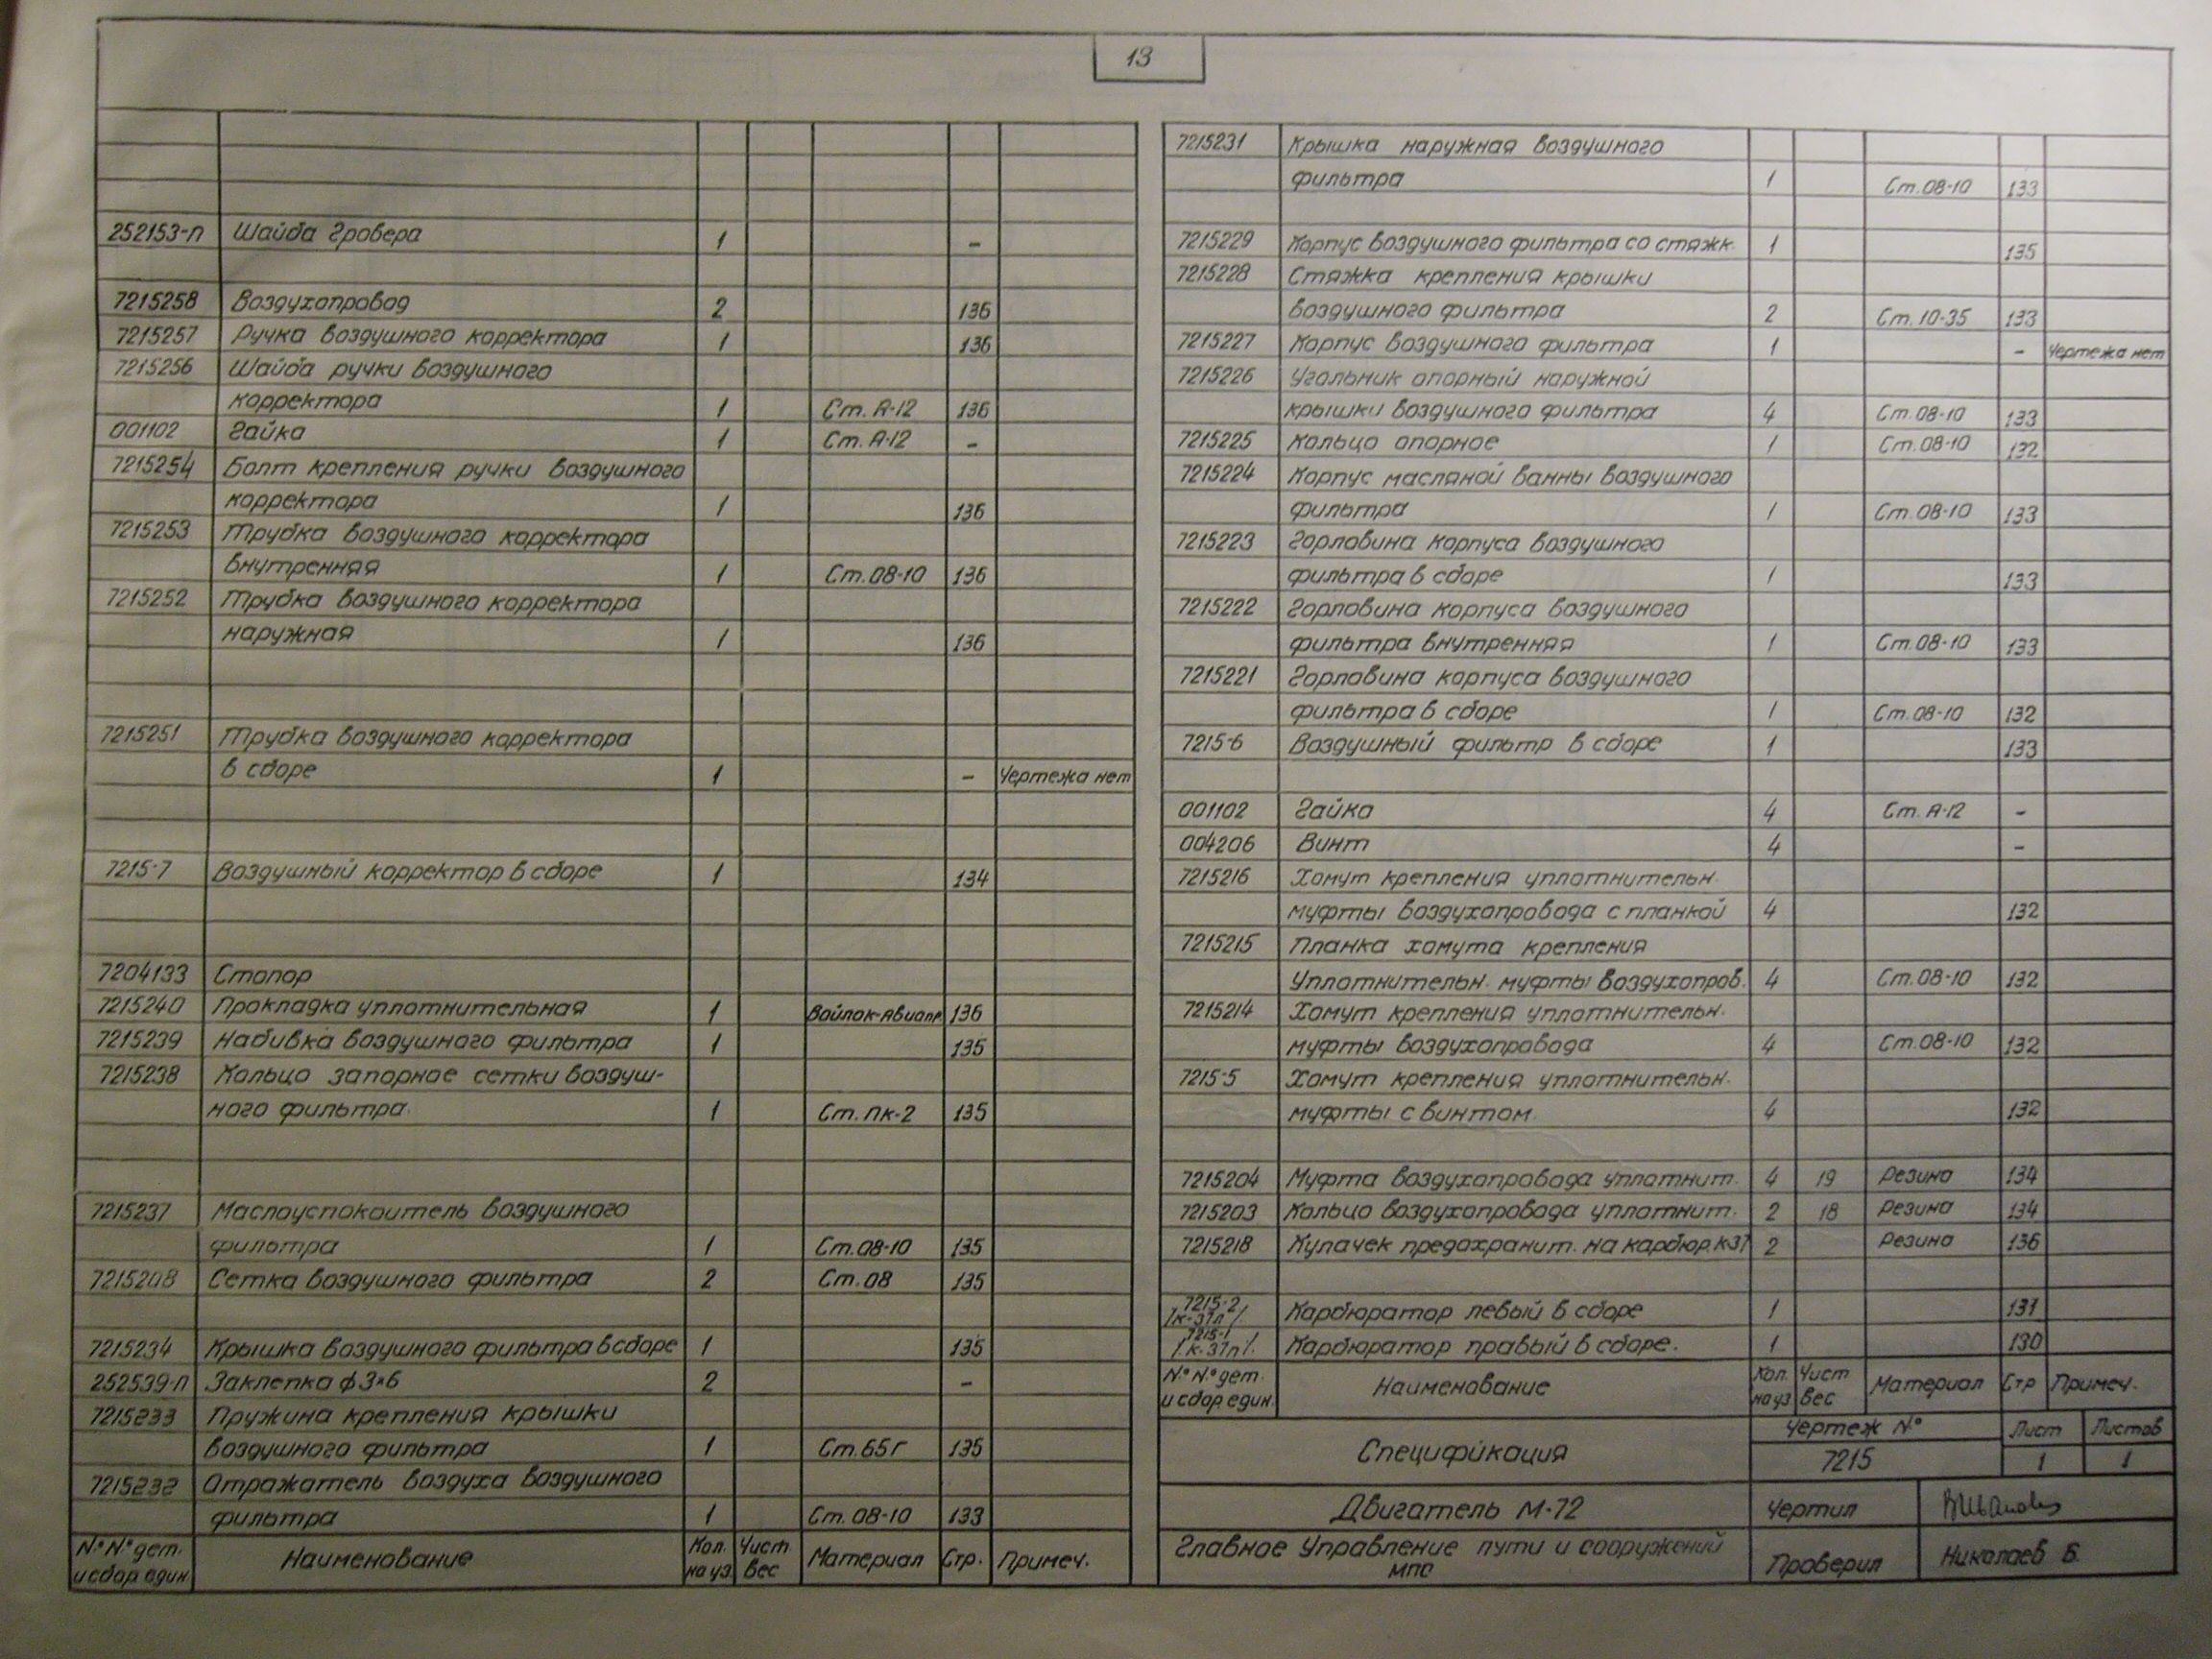 13
252153-П Шайба Гровера 1 -
7215258 Воздухопровод 2 136
7215257 Ручка воздушного корректора 1 136
7215256 Шайба ручки воздушного
корректора 1 Ст. А-12 136
001102 Гайка 1 Ст. А-12 -
7215254 Болт крепления ручки воздушного
корректора 1 136
7215253 Трубка воздушного корректора
внутренняя 1 Ст. 08-10 136
7215252 Трубка воздушного корректора
наружная 1 136
7215251 Трубка воздушного корректора
в сборе 1 - Чертежа нет
7215-7 Воздушный корректор в сборе 1 134
7204133 Стопор
7215240 Прокладка уплотнительная 1 Войлок-Авиапр. 136
7215239 Набивка воздушного фильтра 1 135
7215238 Кольцо запорное сетки воздуш-
ного фильтра. 1 Ст. ПК-2 135
7215237 Маслоуспокоитель воздушного
фильтра 1 Ст. 08-10 135
7215208 Сетка воздушного фильтра 2 Ст. 08 135
7215234 Крышка воздушного фильтра в сборе 1 135
252539-П Заклепка ф 3×6 2 -
7215233 Пружина крепления крышки
воздушного фильтра 1 Ст. 65г 135
7215232 Отражатель воздуха воздушного
фильтра 1 Ст. 08-10 133
N° N° дет. и сбор един. Наименование Кол. на уз. Чист вес Материал Стр. Примеч.
7215231 Крышка наружная воздушного
фильтра 1 Ст. 08-10 133
7215229 Корпус воздушного фильтра со стяжк. 1 135
7215228 Стяжка крепления крышки
воздушного фильтра 2 Ст. 10-35 133
7215227 Корпус воздушного фильтра 1 - Чертежа нет
7215226 Угольник опорный наружной
крышки воздушного фильтра 4 Ст. 08-10 133
7215225 Кольцо опорное 1 Ст. 08-10 132
7215224 Корпус масляной ванны воздушного
фильтра 1 Ст. 08-10 133
7215223 Горловина корпуса воздушного
фильтра в сборе 1 133
7215222 Горловина корпуса воздушного
фильтра внутренняя 1 Ст. 08-10 133
7215221 Горловина корпуса воздушного
фильтра в сборе 1 Ст. 08-10 132
7215-6 Воздушный фильтр в сборе 1 133
001102 Гайка 4 Ст. А-12 -
004206 Винт 4 -
7215216 Хомут крепления уплотнительн.
муфты воздухопровода с планкой 4 132
7215215 Планка хомута крепления
Уплотнительн. муфты воздухопров. 4 Ст. 08-10 132
7215214 Хомут крепления уплотнительн.
муфты воздухопровода 4 Ст. 08-10 132
7215-5 Хомут крепления уплотнительн.
муфты с винтом. 4 132
7215204 Муфта воздухопровода уплотнит. 4 19 Резина 134
7215203 Кольцо воздухопровода уплотнит. 2 18 Резина 134
7215218 Кулачек предохранит. на карбюр. К-37 2 Резина 136
7215-2 /К-37л/ Карбюратор левый в сборе 1 131
7215-1 /К-37п/ Карбюратор правый в сборе. 1 130
N° N° дет. и сбор един. Наименование Кол. на уз. Чист вес Материал Стр Примеч.
Спецификация Чертеж N° 7215 Лист 1 Листов 1
Двигатель М-72 Чертил
Главное Управление пути и сооружений
МПС Проверил Николаев Б.